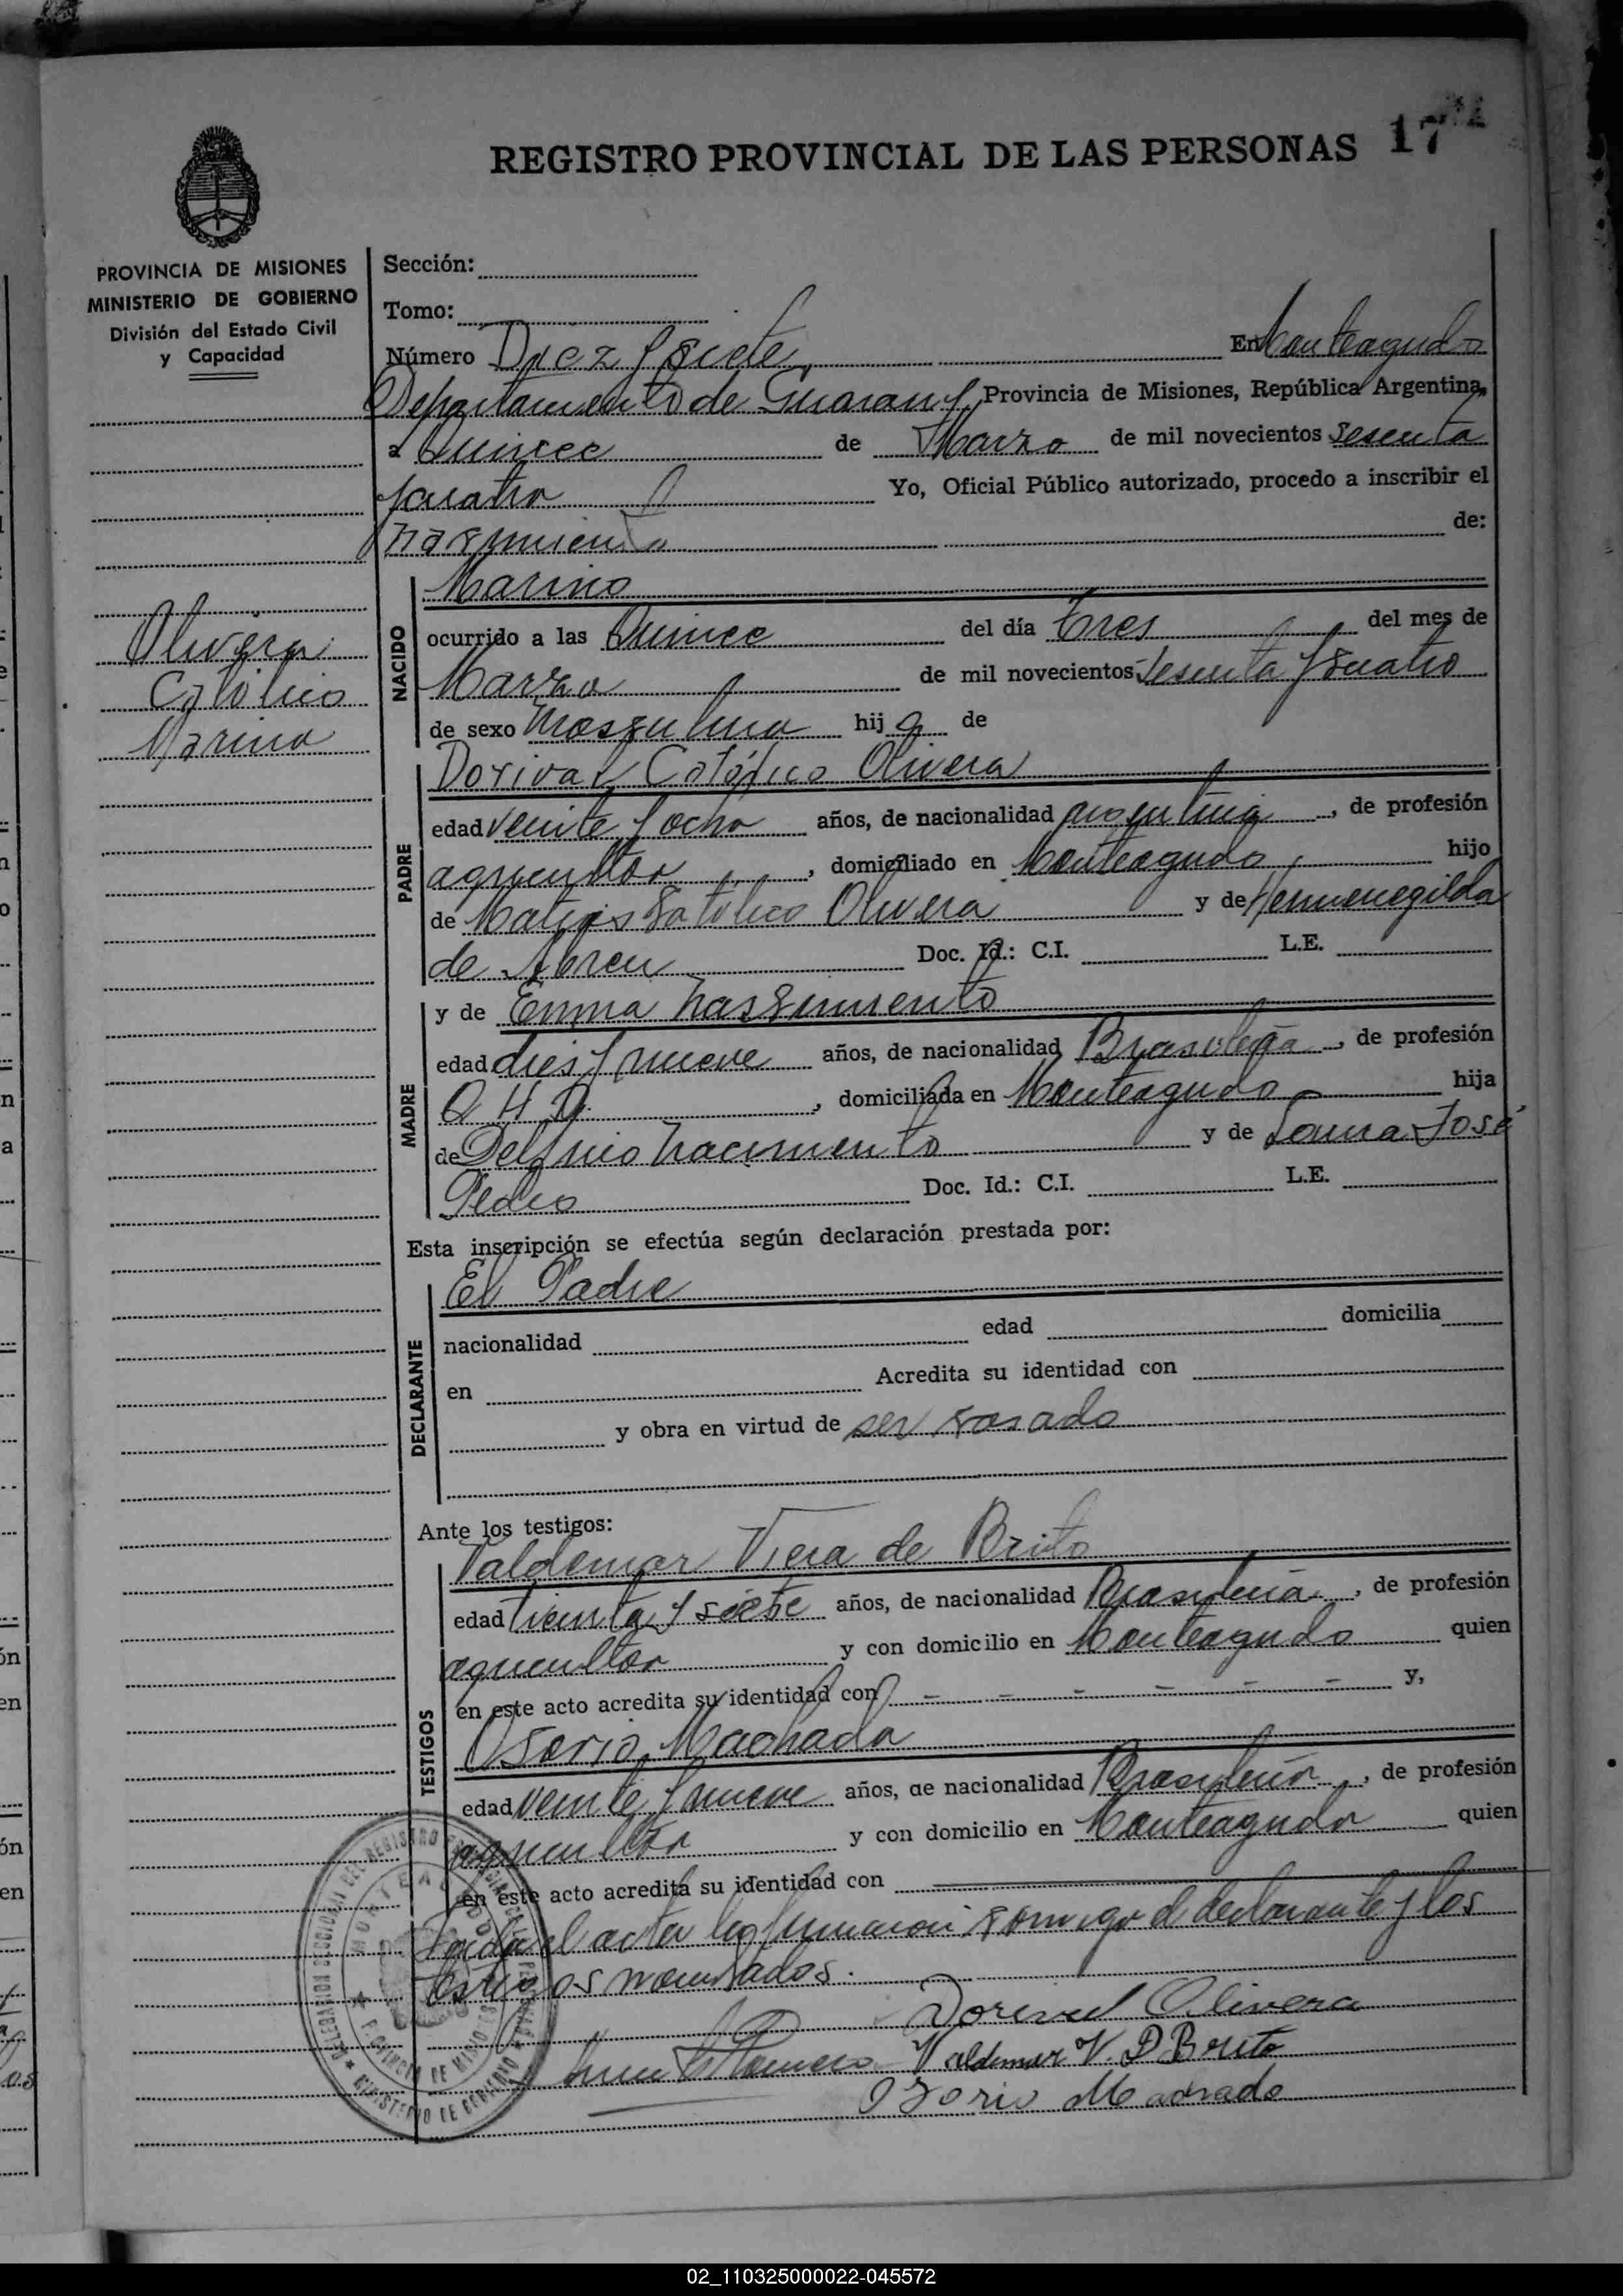 REGISTRO PROVINCIAL DE LAS PERSONAS 17
PROVINCIA DE MISIONES
MINISTERIO DE GOBIERNO
División del Estado Civil
y Capacidad
Sección:
Tomo:
Número Diez y siete En Monteagudo
Departamento de Guarany Provincia de Misiones, República Argentina,
a Quince de Marzo de mil novecientos sesenta
y cuatro Yo, Oficial Público autorizado, procedo a inscribir el
nasimiento de:
Olivera
Catolico
Marino
NACIDO
Marino
ocurrido a las Quince del día tres del mes de
Marzo de mil novecientos sesenta y cuatro
de sexo masculino hijo de
PADRE
Dorival Catolico Olivera
edad veinte y ocho años, de nacionalidad argentina, de profesión
agricultor, domiciliado en Monteagudo, hijo
de Matias Catolico Olivera y de Hermenegilda
de Abreu Doc. Id.: C.I. L.E.
MADRE
y de Emma Nassimiento
edad dies y nueve años, de nacionalidad Brasileña, de profesión
Q H D., domiciliada en Monteagudo hija
de Delfino Nacimiento y de José
Pedro Doc. Id.: C.I. L.E.
Esta inscripción se efectúa según declaración prestada por:
DECLARANTE
El Padre
nacionalidad edad domicilia
en Acredita su identidad con
y obra en virtud de ser casado
Ante los testigos:
TESTIGOS
Valdemar Viera de Brito
edad treinta y siete años, de nacionalidad Brasileña, de profesión
agricultor y con domicilio en Monteagudo quien
en este acto acredita su identidad con - - - - - - y,
Osorio Machado
edad veinte y nueve años, de nacionalidad Brasileña, de profesión
agricultor y con domicilio en Monteagudo quien
en este acto acredita su identidad con
el acta la firmaron comigo el declarante y los
testigos nombrados.
Dorival Olivera
Valdemar V. D Brito
Ozorio Machado
DELEGACION SECCIONAL DEL REGISTRO PROVINCIAL DE LAS PERSONAS
MONTEAGUDO
PROVINCIA DE MISIONES
MINISTERIO DE GOBIERNO
02_110325000022-045572